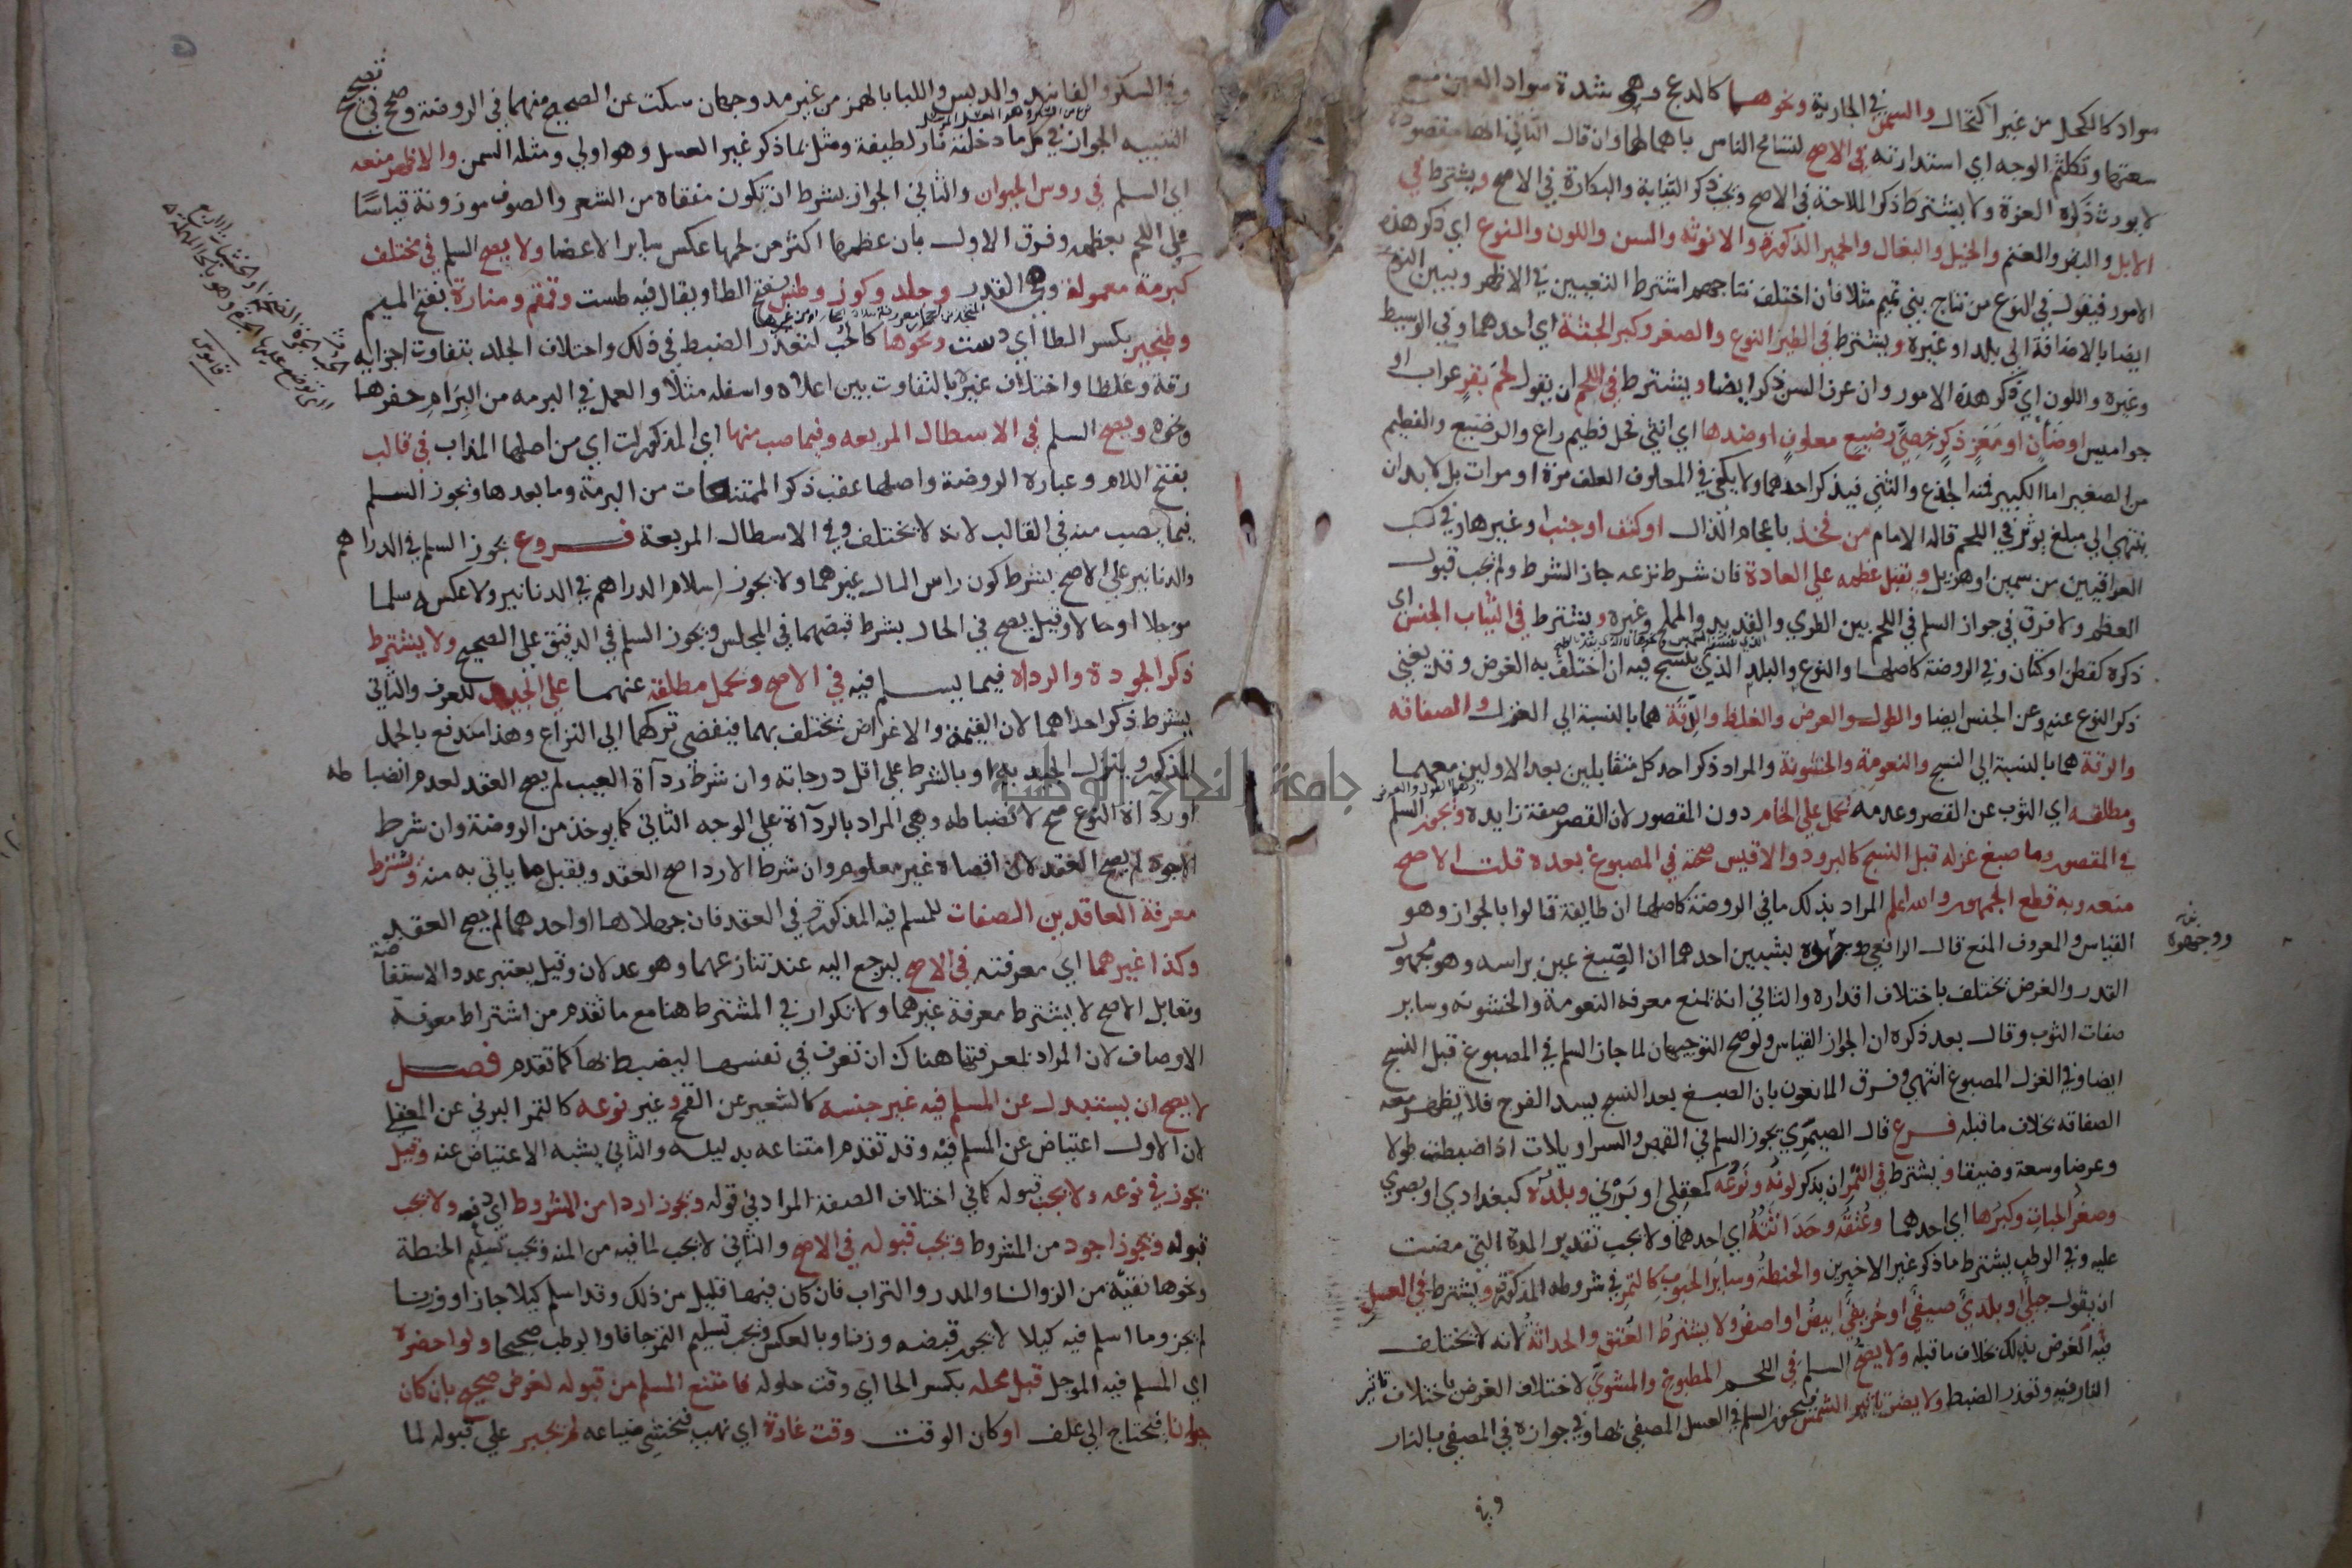 سواد كالكحل من غير اكتحال والسمن في الجارية ونحوهما كالدعج وهو شدة سواد العين مع
سعتها وتكلثم الوجه اي استدارته في الاصح لتسامح الناس باهمالها وان قال الثاني انها مقصودة
لا يورث ذكره العزة ولا يشترط ذكر الملاحة في الاصح ويجب ذكر الثيابة والبكارة في الاصح ويشترط في
الابل والبقر والغنم والخيل والبغال والحمير الذكورة والانوثة والسن واللون والنوع اي ذكر هذه
الامور فيقول في النوع من نتاج بني تميم مثلا فان اختلف نتاجهم اشترط التعيين في الاظهر ويبين النوع
ايضا بالاضافة الى بلد او غيره ويشترط في الطير النوع والصغر وكبر الجثة اي احدهما وفي الوسيط
وغيره واللون اي ذكر هذه الامور وان عرف السن ذكر ايضا ويشترط في اللحم ان يقول لحم بقر عراب او
جواميس او ضان او معز ذكر خصي رضيع معلوف او ضدها اي انثى فحل فطيم راع والرضيع والفطيم
من الصغير اما الكبير فمنه الجذع والثني فيذكر احدهما ولا يكفي في المعلوف العلف مرة او مرات بل لا بد ان
ينتهي الى مبلغ يوثر في اللحم قاله الامام من فخذ باعجام الذال او كتف او جنب او غيرها وفي كتب
العراقيين من سمين او هزيل ويقبل عظمه على العادة فان شرط نزعه جاز الشرط ولم يجب قبول
العظم ولا فرق في جواز السلم في اللحم بين الطري والقديد والمملح وغيره ويشترط في الثياب الجنس اي
ذكره كقطن او كتان وفي الروضة كاصلها والنوع والبلد الذي ينسج فيه ان اختلف به الغرض وقد يغني
ذكر النوع عنه وعن الجنس ايضا والطول والعرض والغلظ والدقة هما بالنسبة الى الغزل والصفاقه
والرقة هما بالنسبة الى النسج والنعومة والخشونة والمراد ذكر احد كل متقابلين بعد الاولين معهما
وهما الطول والعرض
ومطلقه اي الثوب عن القصر وعدمه يحمل على الخام دون المقصور لان القصر صفة زايدة ويجوز السلم
في المقصور وما صبغ غزله قبل النسج كالبرود والاقيس صحته في المصبوغ بعده قلت الاصح
منعه وبه قطع الجمهور والله اعلم المراد بذلك ما في الروضة كاصلها ان طايفة قالوا بالجواز وهو
القياس والمعروف المنع قال الرافعي وجهوه بشيئين احدهما ان الصبغ عين براسه وهو مجهول
القدر والغرض يختلف باختلاف اقداره والثاني انه يمنع معرفة النعومة والخشونه وساير
صفات الثوب وقال بعد ذكره ان الجواز القياس ولو صح التوجيهان لما جاز السلم في المصبوغ قبل النسج
ايضا وفي الغزل المصبوغ انتهى وفرق المانعون بان الصبغ بعد النسج يسد الفرج فلا يظهر معه
الصفاقه بخلاف ما قبله فرع قال الصيمري يجوز السلم في القمص والسراويلات اذا ضبطت طولا
وعرضا وسعة وضيقا ويشترط في التمر ان يذكر لونه ونوعه كمعقلي او برني وبلده كبغدادي او بصري
وصغر الحبات وكبرها اي احدهما وعتقه وحداثته اي احدهما ولا يجب تقدير المدة التي مضت
عليه وفي الرطب يشترط ما ذكر غير الاخيرين والحنطة وساير الحبوب كالتمر في شروطه المذكورة ويشترط في العسل
ان يقول جبلي او بلدي صيفي او خريفي ابيض او اصفر ولا يشترط العتق والحداثة لانه لا يختلف
فيه الغرض بذلك بخلاف ما قبله ولا يصح السلم في اللحم المطبوخ والمشوي لاختلاف الغرض باختلاف تاثير
النار فيه وتعذر الضبط ولا يضر تاثير الشمس فيجوز السلم في العسل المصفى بها وفي جوازه في المصفى بالنار
وفي
ووجهوه
وفي السكر والفانيد والدبس واللبا بالهمز من غير مد وجهان سكت عن الصحيح منهما في الروضة وصحح في تصحيح
التنبيه الجواز في كل ما دخلته نار لطيفة ومثل بما ذكر غير العسل وهو اولى ومثله السمن والاظهر منعه
اي السلم في روس الحيوان والثاني الجواز بشرط ان تكون منقاة من الشعر والصوف موزونة قياسا
على اللحم بعظمه وفرق الاول بان عظمها اكثر من لحمها عكس ساير الاعضا ولا يصح السلم في مختلف
كبرمة معمولة وهي القدر وجلد وكوز وطس بفتح الطا ويقال فيه طست وقمقم ومنارة بفتح الميم
وطنجير بكسر الطا اي دست ونحوها كالحب لتعذر الضبط في ذلك واختلاف الجلد بتفاوت اجزايه
رقة وغلظا واختلاف غيره بالتفاوت بين اعلاه واسفله مثلا والعمل في البرمه من البرام حفرها
ونحوه ويصح السلم في الاسطال المربعه وفيما صب منها اي المذكورات اي من اصلها المذاب في قالب
بفتح اللام وعبارة الروضة واصلها عقب ذكر الممتنعات من البرمة وما بعدها ويجوز السلم
فيما يصب منه في القالب لانه لا يختلف وفي الاسطال المربعة فروع يجوز السلم في الدراهم
والدنانير على الاصح بشرط كون راس المال غيرهما ولا يجوز اسلام الدراهم في الدنانير ولا عكسه سلما
موجلا او حالا وقيل يصح في الحال بشرط قبضهما في المجلس ويجوز السلم في الدقيق على الصحيح ولا يشترط
ذكر الجودة والرداة فيما يسلم فيه في الاصح ويحمل مطلقه عنهما على الجيد للعرف والثاني
يشترط ذكر احداهما لان القيمة والاغراض تختلف بهما فيفضي تركهما الى النزاع وهذا مندفع بالحمل
المذكور وينزل الجيد به او بالشرط على اقل درجاته وان شرط رداة العيب لم يصح العقد لعدم انضباطه
او رداة النوع صح لانضباطه وهي المراد بالرداة على الوجه الثاني كما يوخذ من الروضة وان شرط
الاجود لم يصح العقد لان اقصاه غير معلوم وان شرط الاردا صح العقد ويقبل ما ياتي به منه ويشترط
معرفة العاقدين الصفات للمسلم فيه المذكورة في العقد فان جهلاها او احدهما لم يصح العقد
وكذا غيرهما اي معرفته في الاصح ليرجع اليه عند تنازعهما وهو عدلان وقيل يعتبر عدد الاستفاضة
ومقابل الاصح لا يشترط معرفة غيرهما ولا تكرار في المشترط هنا مع ما تقدم من اشتراط معرفة
الاوصاف لان المراد بمعرفتها هناك ان تعرف في نفسها ليضبط بها كما تقدم فصل
لا يصح ان يستبدل عن المسلم فيه غير جنسه كالشعير عن القمح وغير نوعه كالتمر البرني عن المعقلي
لان الاول اعتياض عن المسلم فيه وقد تقدم امتناعه بدليله والثاني يشبه الاعتياض عنه وقيل
يجوز في نوعه ولا يجب قبوله كما في اختلاف الصفة المراد في قوله ويجوز اردا من المشروط اي دونه ولا يجب
قبوله ويجوز اجود من المشروط ويجب قبوله في الاصح والثاني لا يجب لما فيه من المنه ويجب تسليم الحنطة
ونحوها نقية من الزوان والمدر والتراب فان كان فيها قليل من ذلك وقد اسلم كيلا جاز او وزنا
لم يجز وما اسلم فيه كيلا لا يجوز قبضه وزنا وبالعكس ويجب تسليم التمر جافا والرطب صحيحا ولو احضره
اي المسلم فيه الموجل قبل محله بكسر الحا اي وقت حلوله فامتنع المسلم من قبوله لغرض صحيح بان كان
حيوانا فيحتاج الى علف او كان الوقت وقت غارة اي نهب فيخشى ضياعه لم يجبر على قبوله لما
قاموس